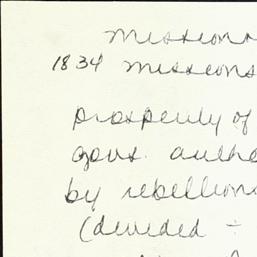 Missions
1834 missions
prosperity of
govt. autho
by rebellions
(divided ÷